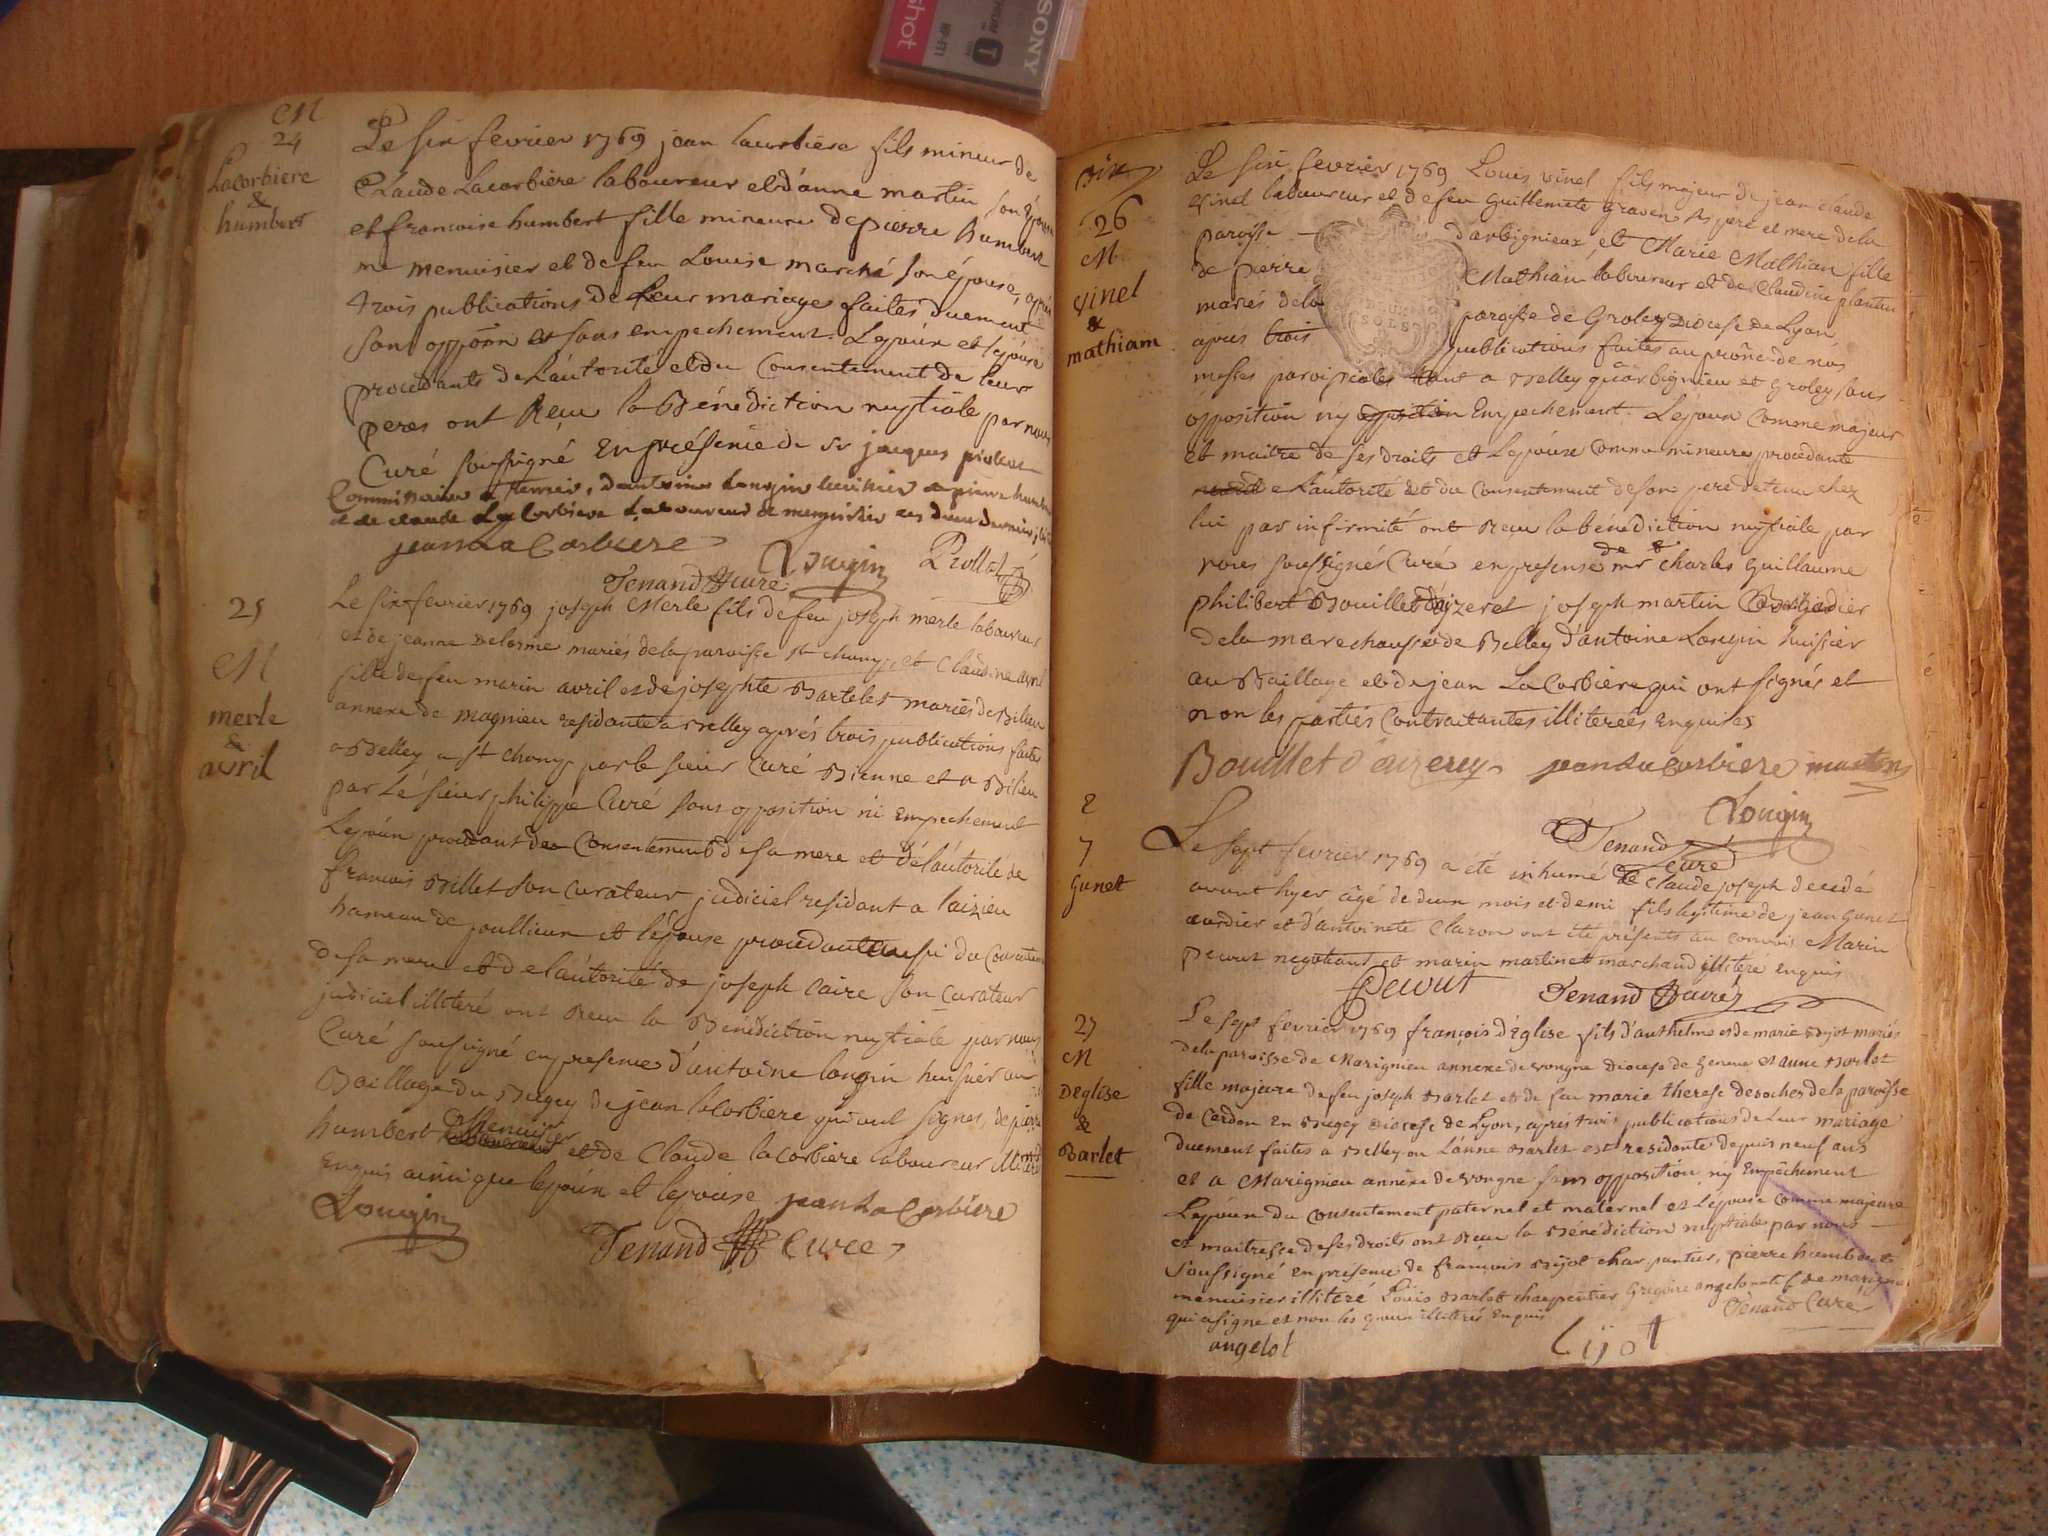 M
24
Lacorbiere
&
humbert
Le six fevrier 1769 jean lacorbiere fils mineur de
Claude Lacorbiere laboureur et d'anne martin son épouse
et francoise humbert fille mineure de pierre humbert
me menuisier et de feu Louise marché son épouse, après
trois publications de Leur mariage faites duement
sans oppõon et sans empechement. Lepoux et lepouse
procedants de Lautorité et du Consentement de leurs
peres ont Reçu la Bénédiction nuptiale par nous
Curé soussigné En présence de sr jacques
Commissaire a terrier, d'antoine Longin huissier de pierre humbert
et de claude La Corbiere Laboureur et menuisier ces deux derniers
jean La Corbiere
Longin
Tenand Curé
25
M
merle
&
avril
Le six fevrier 1769 joseph Merle fils de feu joseph merle laboureur
et de jeanne Delorme mariés de la paroisse st champ, et Claudine avril
fille de feu marin avril et de josephte Bartelet mariés de Bilieu
annexe de magnieu residante a Belley aprés trois publications faites
a Belley a st champ par le sieur Curé Bienne et a Bilieu
par Le sieur philippe Curé sans opposition ni Empechement
Lepoux procedant de Consentement de sa mere et de lautorité de
francois Billet son curateur judiciel residant a laizieu
hameau de poullieux et lépouse procedante aussi du Consentement
de sa mere et de lautorité de joseph Caire son Curateur
judiciel illiteré ont Reçu la Bénédiction nuptiale par nous
Curé soussigné en presence d'antoine longin huissier au
Baillage du Bugey de jean laCorbiere qui ont signés, de pierre
humbert Menuisier et de Claude lacorbiere laboureur illiterés
Enquis ainsi que lepoux et lepouse jean La Corbiere
Longin
Tenand Curé
Dix
26
M
vinel
&
mathiam
Le six fevrier 1769 Louis vinel fils majeur de jean claude
vinel laboureur et de feu Guillemete graven ses pere et mere de la
paroisse d'arbignieux et Marie Mathian fille
de pierre Mathian laboureur et de Claudine plantin
mariés de la paroisse de Groley Diocese de Lyon
SOLS
apres trois publications faites au prône de nos
messes paroissiales tant a Belley qu'a arbignieu et Groley sans
opposition ny Empechement. Lepoux comme majeur
et maitre de ses droits et Lepouse comme mineure procedante
de Lautorité et du Consentement de son pere detenu chez
lui par infirmité ont Reçu la bénédiction nuptiale par
nous soussignés Curé en presense de mr Charles Guillaume
philibert Bouillet d'aizeret joseph martin Brigadier
de la marechaussée de Belley d'antoine Longin huissier
au Baillage et de jean La Corbiere qui ont signés et
non les parties Contraitantes illiterées Enquises
Bouillet d'aizerey jean La Corbiere martin
Longin
Tenand
Curé
2
7
Gunet
Le sept fevrier 1769 a été inhumé claude joseph decedé
avant hyer âgé de deux mois et demi fils legitime de jean Gunet
cardier et d'antoinete Claron ont été présents au convois Marin
peccut negotiant et marin martinet marchand illiteré enquis
Peccut
Tenand Curé
27
M
Deglise
&
Barlet
Le sept fevrier 1769 françois d'Eglise fils d'anthelme et de marie Bijot mariés
de la paroisse de Marignieu annexe de vongne diocese de Geneve et anne Barlet
fille majeure de feu joseph Barlet et de feu marie therese desroches de la paroisse
de Cerdon En Bugey Diocese de Lyon, aprés trois publications de Leur mariage
duement faites a Belley ou L'anne Barlet est residante depuis neuf ans
et a Marignieu annexe de vongne sans opposition ny Empêchement
Lepoux du consentement paternel et maternel et Lépouse comme majeure
et maitresse de ses droits ont Reçu la Bénédiction nuptiale par nous
soussigné en présence de françois Bijot charpentier, pierre humbert
menuisier illiteré Louis Barlet charpentier Gregoire angelot de marignieu
qui a signé et non les epoux illiterés Enquis
Tenand Curé
angelot
bijot
SONY
shot